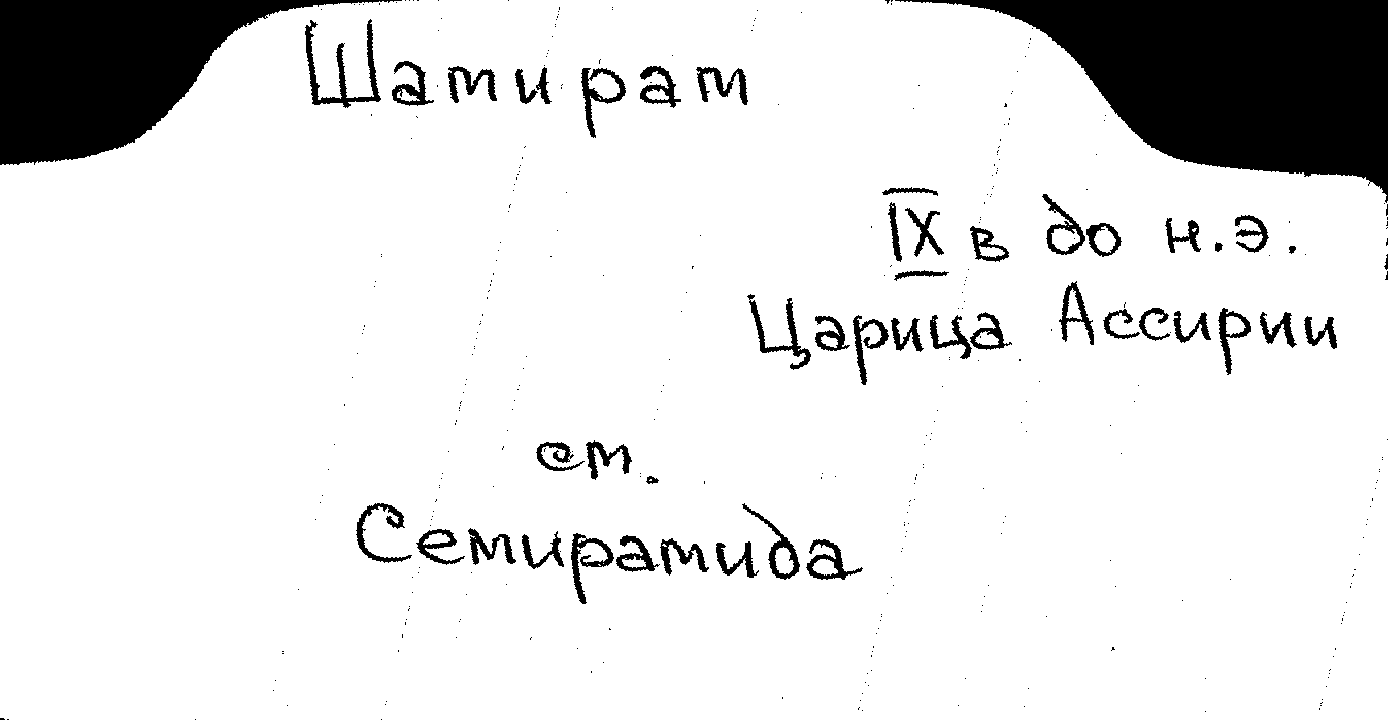 Шамирам
IX в до н.э.
Царица Ассирии
см.
Семирамида